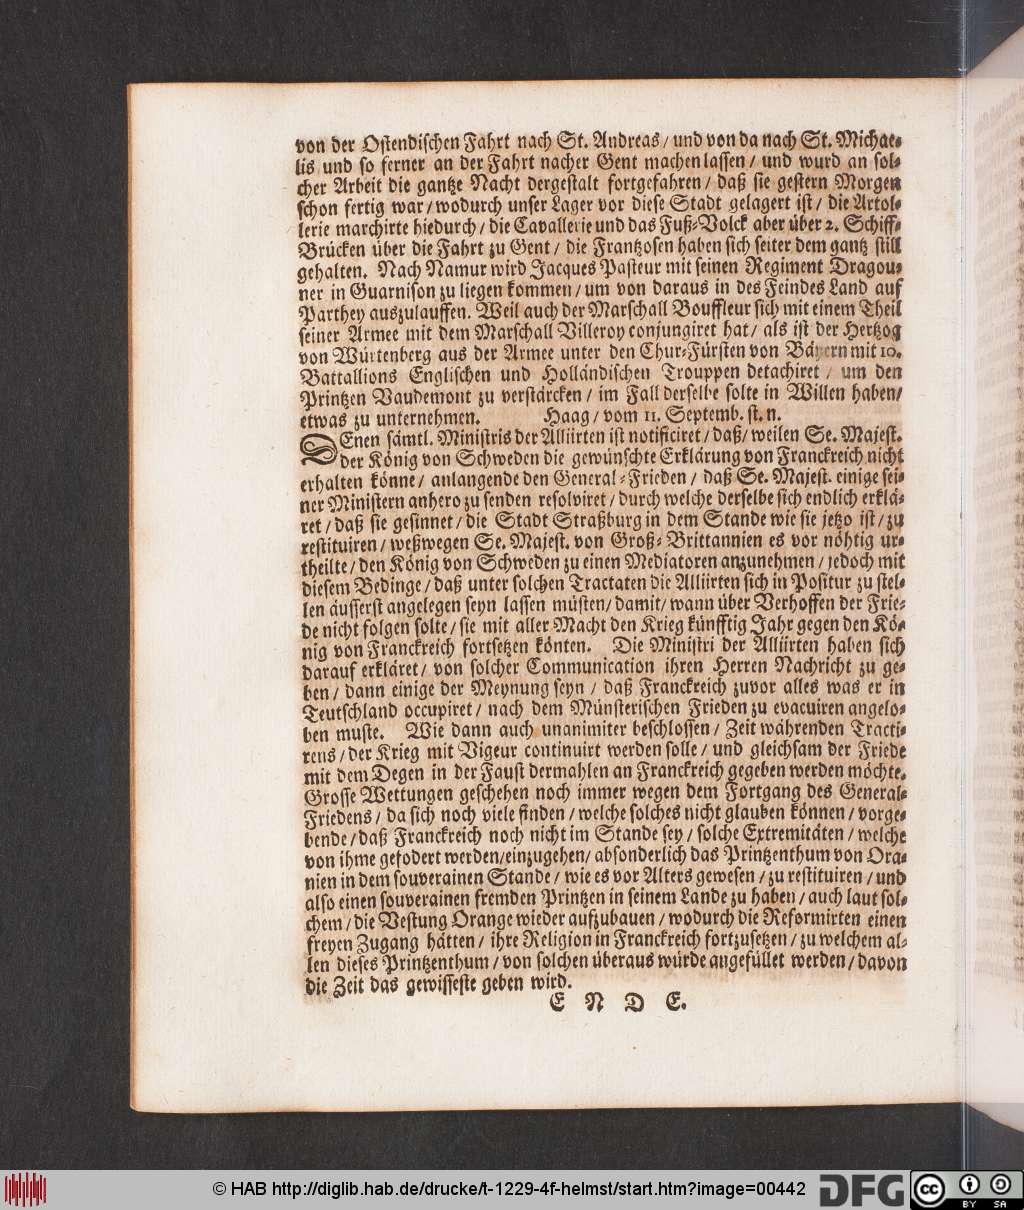 von der Ostendischen Fahrt nach St. Andreas / und von da nach St. Michae-
lis und so ferner an der Fahrt nacher Gent machen lassen / und wurd an sol-
cher Arbeit die gantze Nacht dergestalt fortgefahren / daß sie gestern Morgen
schon fertig war / wodurch unser Lager vor diese Stadt gelagert ist / die Artol-
lerie marchirte hiedurch / die Cavallerie und das Fuß-Volck aber über 2. Schiff-
Brücken über die Fahrt zu Gent / die Frantzosen haben sich seiter dem gantz still
gehalten. Nach Namur wird Jacques Pasteur mit seinen Regiment Dragou-
ner in Guarnison zu liegen kommen / um von daraus in des Feindes Land auf
Parthey auszulauffen. Weil auch der Marschall Bouffleur sich mit einem Theil
seiner Armee mit dem Marschall Villeroy conjungiret hat / als ist der Hertzog
von Würtenberg aus der Armee unter den Chur-Fürsten von Bäyern mit 10.
Battallions Englischen und Holländischen Trouppen detachiret / um den
Printzen Vaudemont zu verstärcken / im Fall derselbe solte in Willen haben/
etwas zu unternehmen. Haag / vom 11. Septemb. st. n.
DEnen sämtl. Ministris der Alliirten ist notificiret / daß / weilen Se. Majest.
der König von Schweden die gewünschte Erklärung von Franckreich nicht
erhalten könne / anlangende den General-Frieden / daß Se. Majest. einige sei-
ner Ministern anhero zu senden resolviret / durch welche derselbe sich endlich erklä-
ret / daß sie gesinnet / die Stadt Straßburg in dem Stande wie sie jetzo ist / zu
restituiren / weßwegen Se. Majest. von Groß-Brittannien es vor nöhtig ur-
theilte / den König von Schweden zu einen Mediatoren anzunehmen / jedoch mit
diesem Bedinge / daß unter solchen Tractaten die Alliirten sich in Positur zu stel-
len äusserst angelegen seyn lassen müsten / damit / wann über Verhoffen der Frie-
de nicht folgen solte / sie mit aller Macht den Krieg künfftig Jahr gegen den Kö-
nig von Franckreich fortsetzen könten. Die Ministri der Alliirten haben sich
darauf erkläret / von solcher Communication ihren Herren Nachricht zu ge-
ben / dann einige der Meynung seyn / daß Franckreich zuvor alles was er in
Teutschland occupiret / nach dem Münsterischen Frieden zu evacuiren angelo-
ben muste. Wie dann auch unanimiter beschlossen / Zeit währenden Tracti-
rens / der Krieg mit Vigeur continuirt werden solle / und gleichsam der Friede
mit dem Degen in der Faust dermahlen an Franckreich gegeben werden möchte.
Grosse Wettungen geschehen noch immer wegen dem Fortgang des General-
Friedens / da sich noch viele finden / welche solches nicht glauben können / vorge-
bende / daß Franckreich noch nicht im Stande sey / solche Extremitäten / welche
von ihme gefodert werden/einzugehen / absonderlich das Printzenthum von Ora-
nien in dem souverainen Stande / wie es vor Alters gewesen / zu restituiren / und
also einen souverainen fremden Printzen in seinem Lande zu haben / auch laut sol-
chem / die Vestung Orange wieder aufzubauen / wodurch die Reformirten einen
freyen Zugang hätten / ihre Religion in Franckreich fortzusetzen / zu welchem al-
len dieses Printzenthum / von solchen überaus würde angefüllet werden / davon
die Zeit das gewisseste geben wird.
E N D E.
© HAB http://diglib.hab.de/drucke/t-1229-4f-helmst/start.htm?image=00442
DFG
cc BY SA